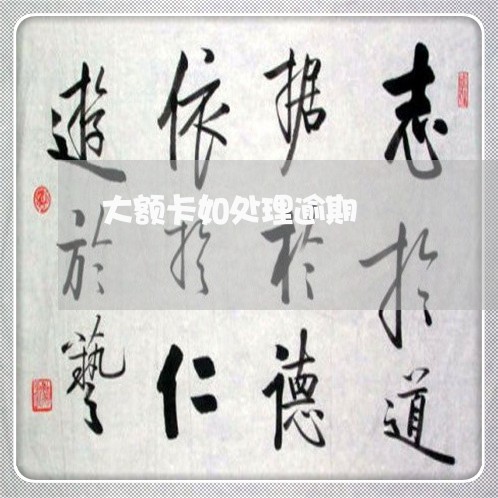 志於道
据於德
依於仁
遊於藝
大额卡如处理逾期